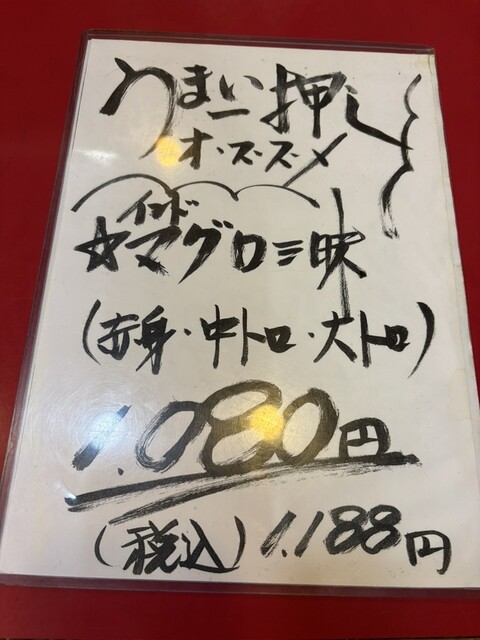 うまい一押し
オ・ス・ズ・メ
インド
☆マグロ三昧
(赤身・中トロ・大トロ)
1.080円
(税込) 1.188円